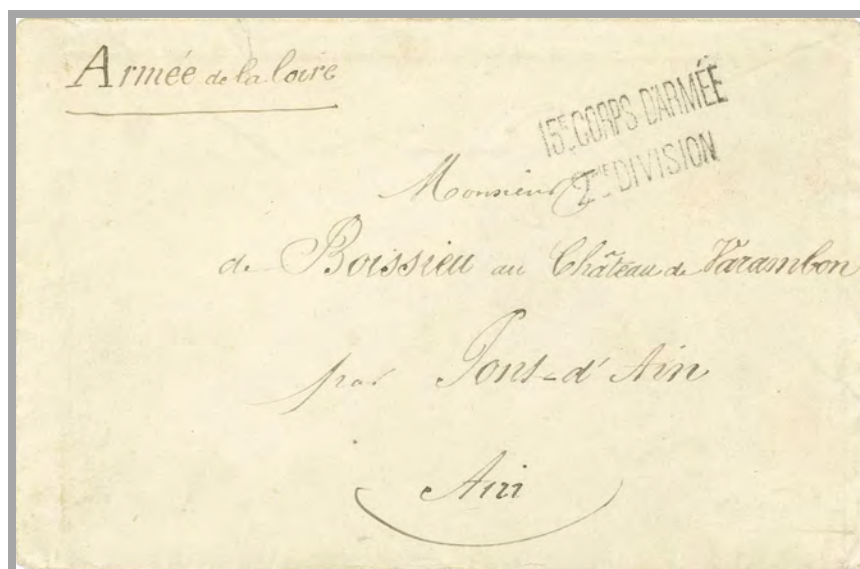 Armée de la loire
15E CORPS D'ARMÉE
2ME DIVISION
Monsieur
de Boissieu au Château de Varambon
par Pont-d'Ain
Ain